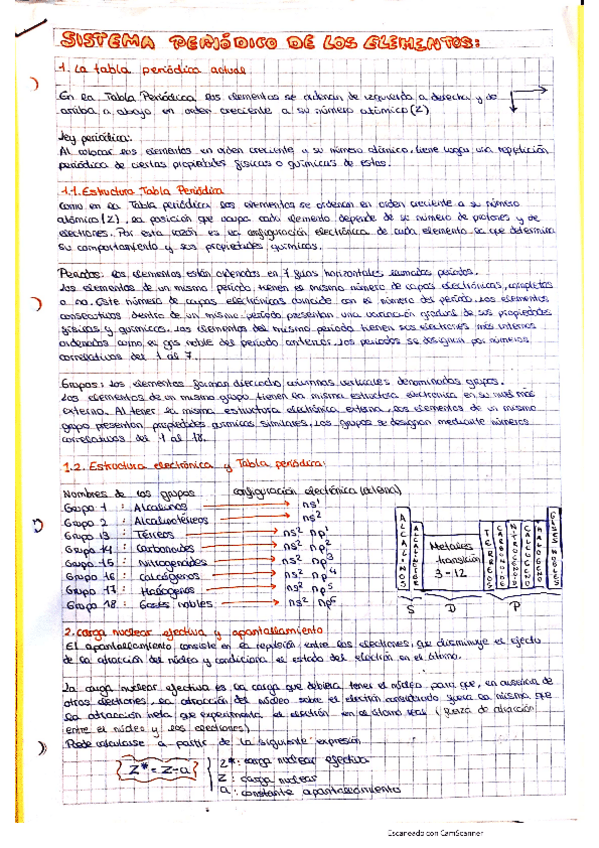 SISTEMA PERIÓDICO DE LOS ELEMENTOS:
1. La tabla periódica actual
En la Tabla Periódica los elementos se ordenan de izquierda a derecha y de
arriba a abajo en orden creciente a su número atómico (Z)
Ley periódica:
Al colocar los elementos en orden creciente a su número atómico, tiene lugar una repetición
periódica de ciertas propiedades físicas o químicas de estos.
1.1. Estructura Tabla Periódica
Como en la Tabla periódica los elementos se ordenan en orden creciente a su número
atómico (Z), la posición que ocupa cada elemento depende de su número de protones y de
electrones. Por esta razón es la configuración electrónica de cada elemento la que determina
su comportamiento y sus propiedades químicas.
Periodos: los elementos están ordenados en 7 filas horizontales llamadas periodos.
Los elementos de un mismo periodo tienen el mismo número de capas electrónicas, completas
o no. Este número de capas electrónicas coincide con el número del periodo. Los elementos
consecutivos dentro de un mismo periodo presentan una variación gradual de sus propiedades
físicas y químicas. Los elementos del mismo periodo tienen sus electrones más internos
ordenados como el gas noble del periodo anterior. Los periodos se designan por números
correlativos del 1 al 7.
Grupos: Los elementos forman dieciocho columnas verticales denominadas grupos.
Los elementos de un mismo grupo tienen la misma estructura electrónica en su nivel más
externo. Al tener la misma estructura electrónica externa, los elementos de un mismo
grupo presentan propiedades químicas similares. Los grupos se designan mediante números
correlativos del 1 al 18.
1.2. Estructura electrónica y Tabla periódica:
Nombres de los grupos configuración electrónica (externa)
Grupo 1 : Alcalinos ns¹
Grupo 2 : Alcalinotérreos ns²
Grupo 13 : Térreos ns² np¹
Grupo 14 : Carbonoides ns² np²
Grupo 15 : Nitrogenoides ns² np³
Grupo 16 : Calcógenos ns² np⁴
Grupo 17 : Halógenos ns² np⁵
Grupo 18 : Gases nobles ns² np⁶
ALCALINOS
Metales
transición
3-12
TERREOS
GASES NOBLES
S D P
2. Carga nuclear efectiva y apantallamiento
El apantallamiento consiste en la repulsión entre los electrones, que disminuye el efecto
de la atracción del núcleo y condiciona el estado del electrón en el átomo.
La carga nuclear efectiva es la carga que debiera tener el núcleo para que, en ausencia de
otros electrones, la atracción del núcleo sobre el electrón considerado fuera la misma que
la atracción neta que experimenta el electrón en el átomo real (fuerza de atracción
entre el núcleo y los electrones)
Puede calcularse a partir de la siguiente expresión
Z* = Z-a
Z*: carga nuclear efectiva
Z : carga nuclear
a : constante apantallamiento
Escaneado con CamScanner